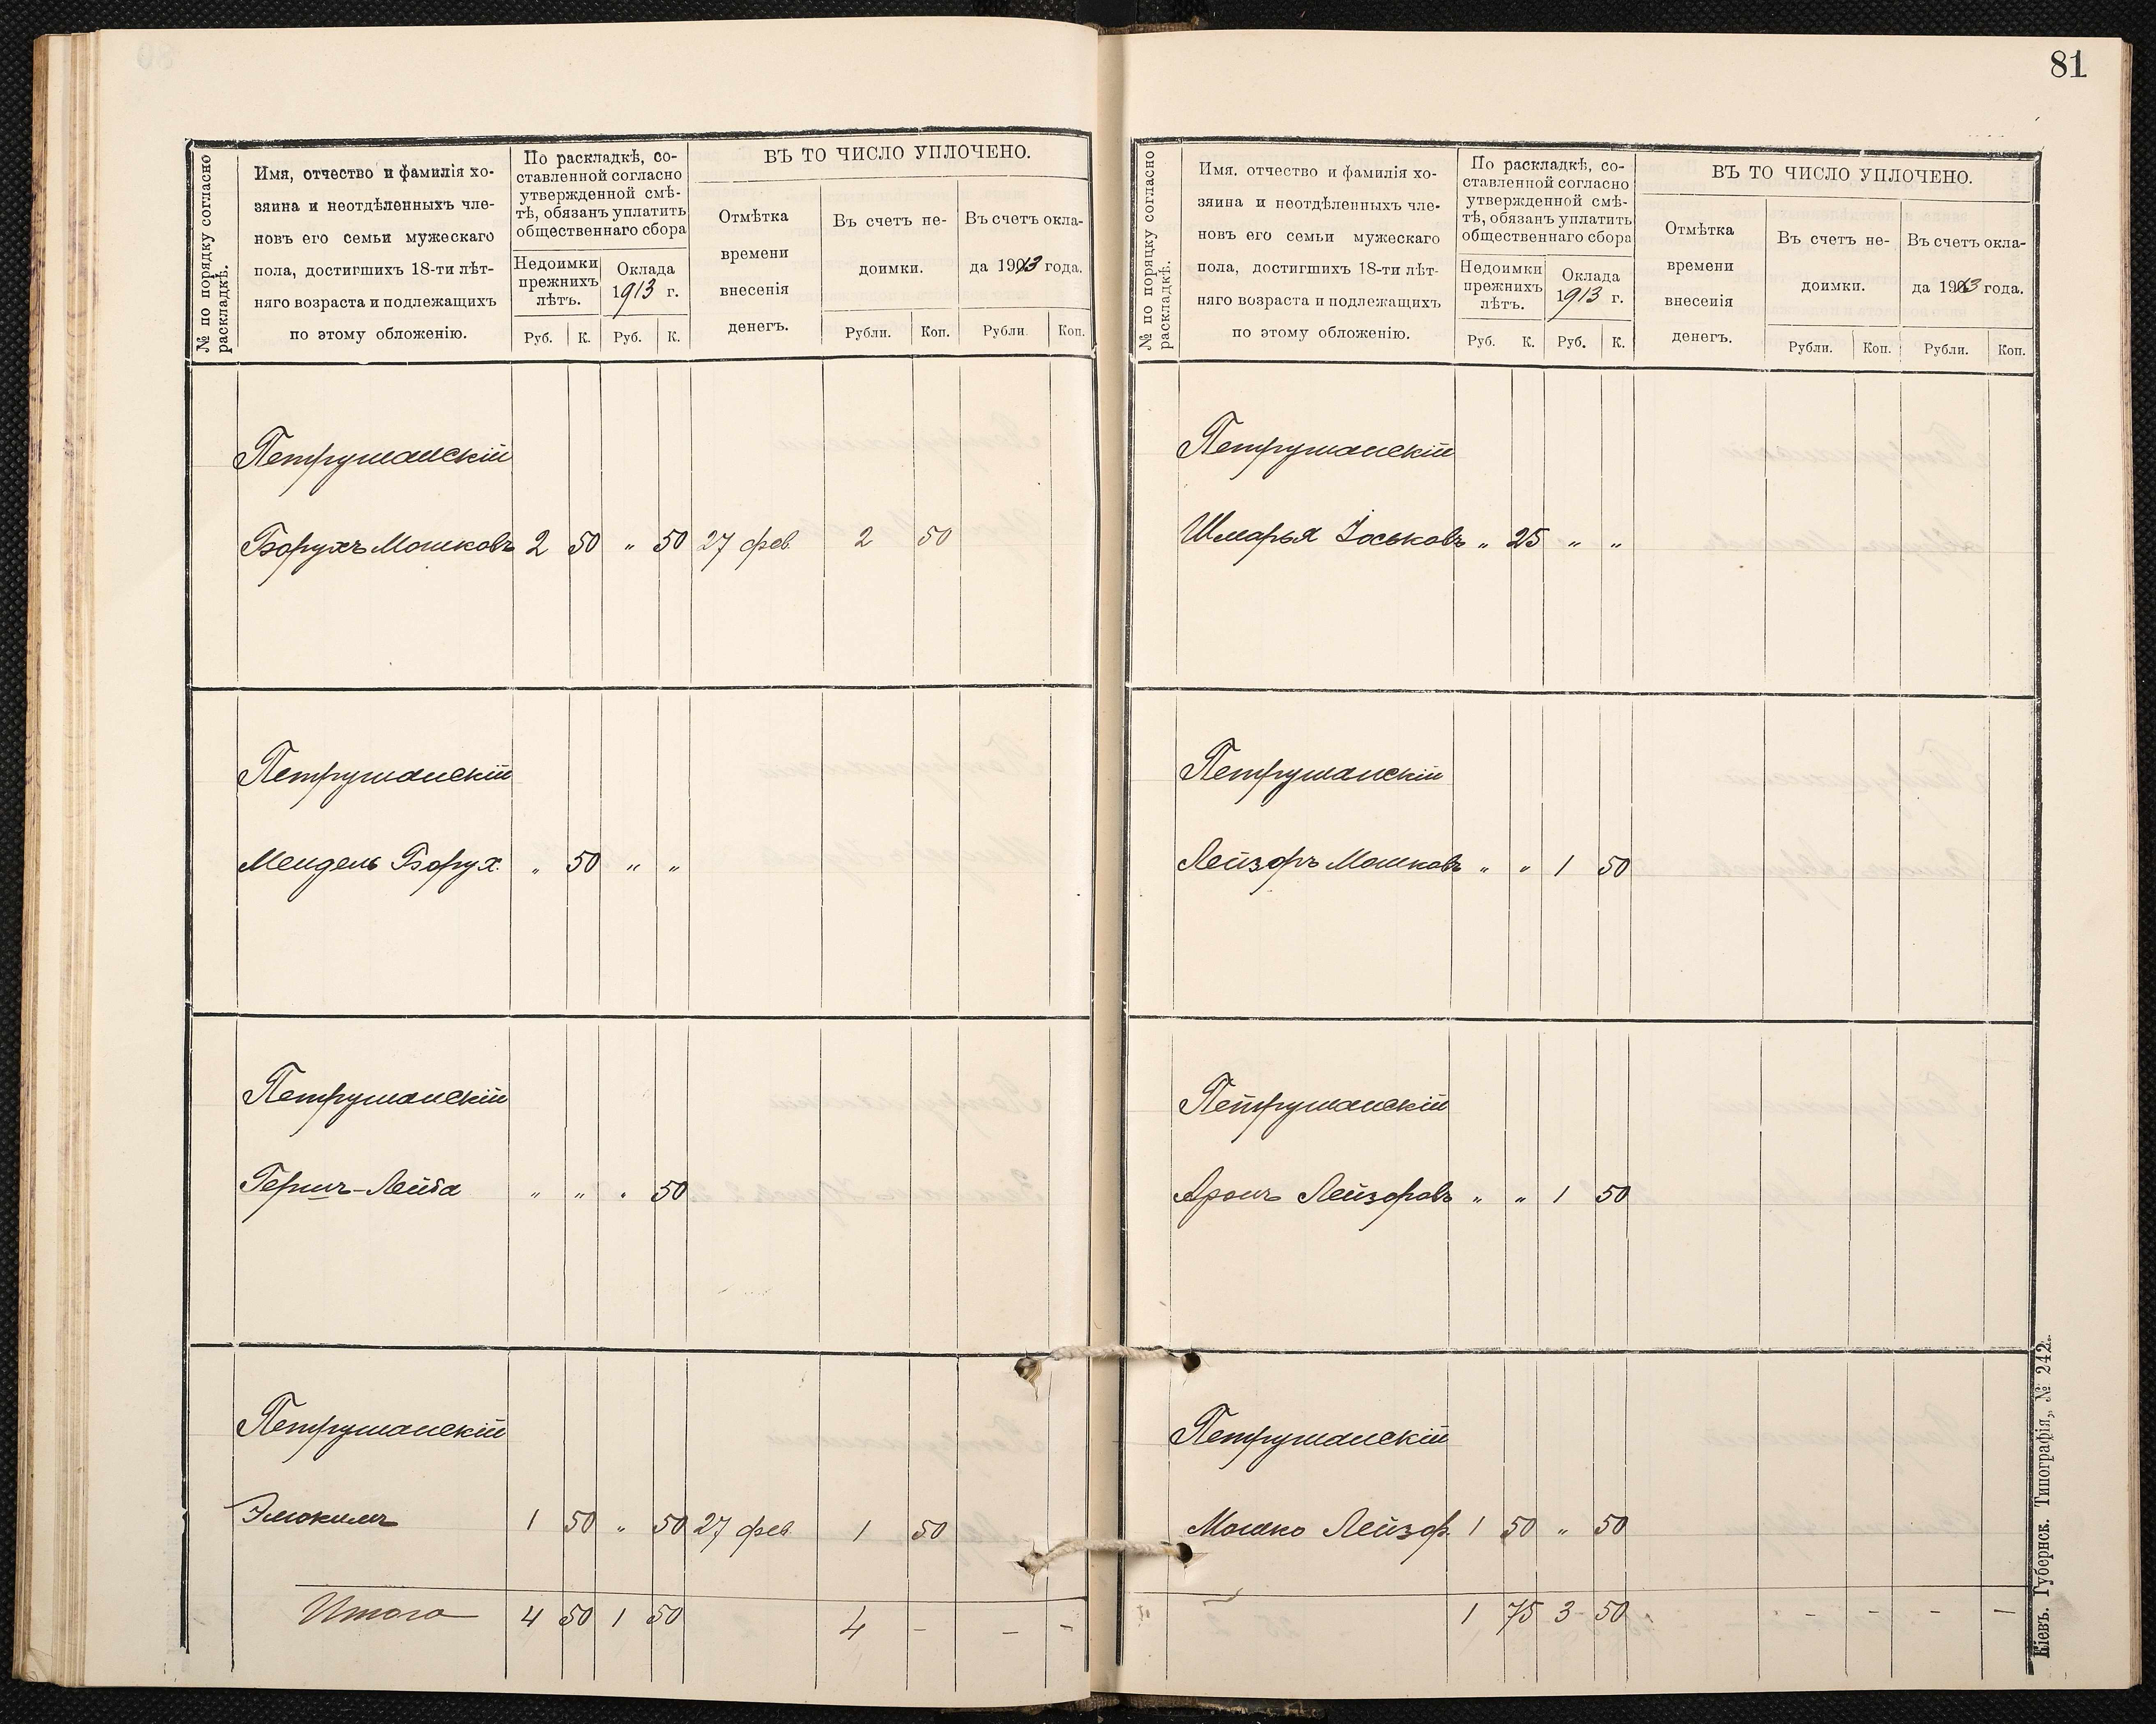 81
№ по порядку согласно
раскладкѣ.
Имя, отчество и фамилія хо-
зяина и неотдѣленныхъ чле-
новъ его семьи мужескаго
пола, достигшихъ 18-ти лѣт-
няго возраста и подлежащихъ
по этому обложенію.
По раскладкѣ, со-
ставленной согласно
утвержденной смѣ-
тѣ, обязанъ уплатить
общественнаго сбора
Недоимки
прежнихъ
лѣтъ.
Оклада
1913 г.
Руб. К. Руб. К.
ВЪ ТО ЧИСЛО УПЛОЧЕНО.
Отмѣтка
времени
внесенія
денегъ.
Въ счетъ не-
доимки.
Въ счетъ окла-
да 1913 года.
Рубли. Коп. Рубли Коп.
Петрушанскій
Борухъ Мошковъ 2 50 " 50 27 фев. 2 50
Петрушанскій
Мендель Борух. " 50 " "
Петрушанскій
Гершъ-Лейба " " " 50
Петрушанскій
Элюкимъ 1 50 " 50 27 фев. 1 50
Итого 4 50 1 50 4 - - -
№ по поряцку согласно
раскладкѣ.
Имя. отчество и фамилія хо-
зяина и неотдѣленныхъ чле-
новъ его семьи мужескаго
пола, достигшихъ 18-ти лѣт-
няго возраста и подлежащихъ
по этому обложенію.
По раскладкѣ, со-
ставленной согласно
утвержденной смѣ-
тѣ, обязанъ уплатить
общественнаго сбора
Недоимки
прежнихъ
лѣтъ.
Оклада
1913 г.
Руб. К. Руб. К.
ВЪ ТО ЧИСЛО УПЛОЧЕНО.
Отмѣтка
времени
внесенія
денегъ.
Въ счетъ не-
доимки.
Въ счетъ окла-
да 1913 года.
Рубли. Коп. Рубли. Коп.
Петрушанскій
Шмарья Іоськовъ " 25 " "
Петрушанскій
Лейзоръ Мошковъ " " 1 50
Петрушанскій
Аронъ Лейзоровъ " " 1 50
Петрушанскій
Мошко Лейзор. 1 50 " 50
1 75 3 50 - - - -
Кіевъ. Губернск. Типографія, № 242.